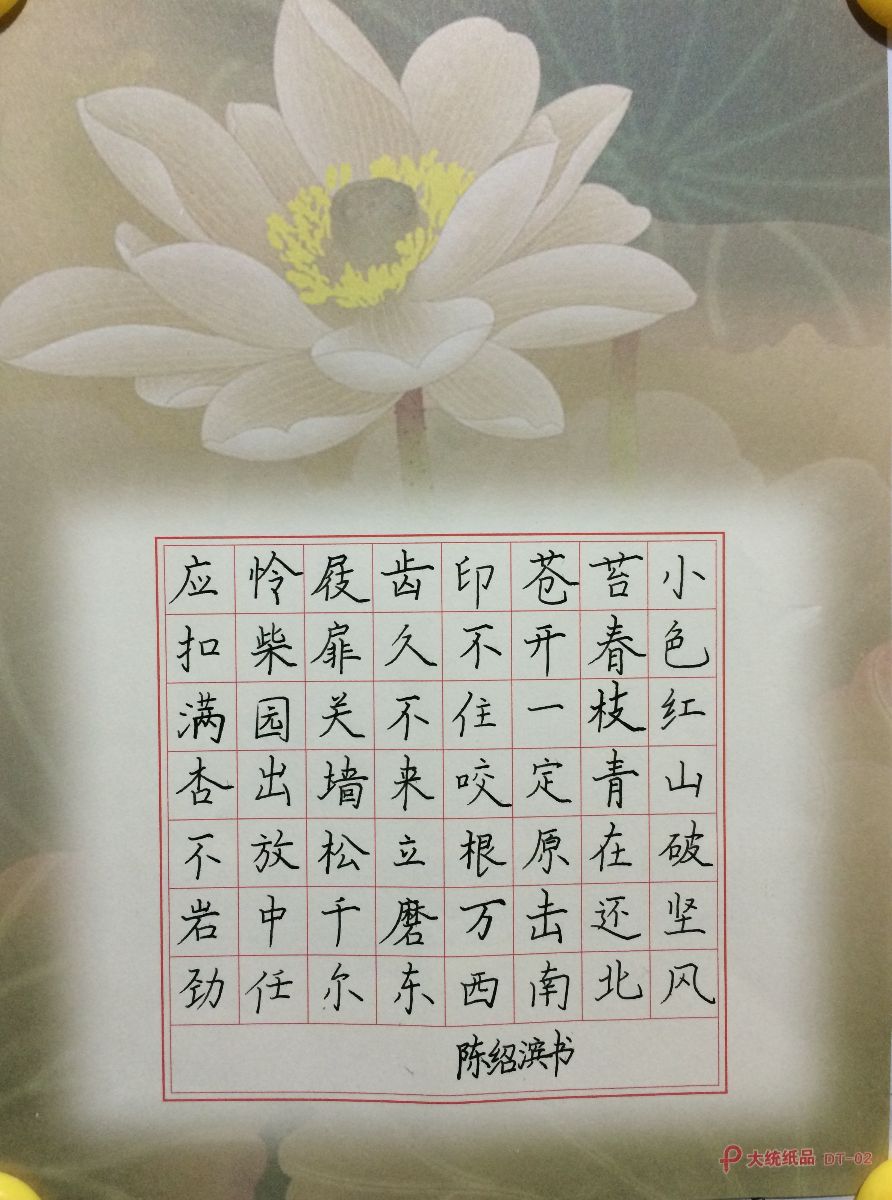 应怜屐齿印苍苔小
扣柴扉久不开春色
满园关不住一枝红
杏出墙来咬定青山
不放松立根原在破
岩中千磨万击还坚
劲任尔东西南北风
陈绍滨书
大统纸品 DT-02